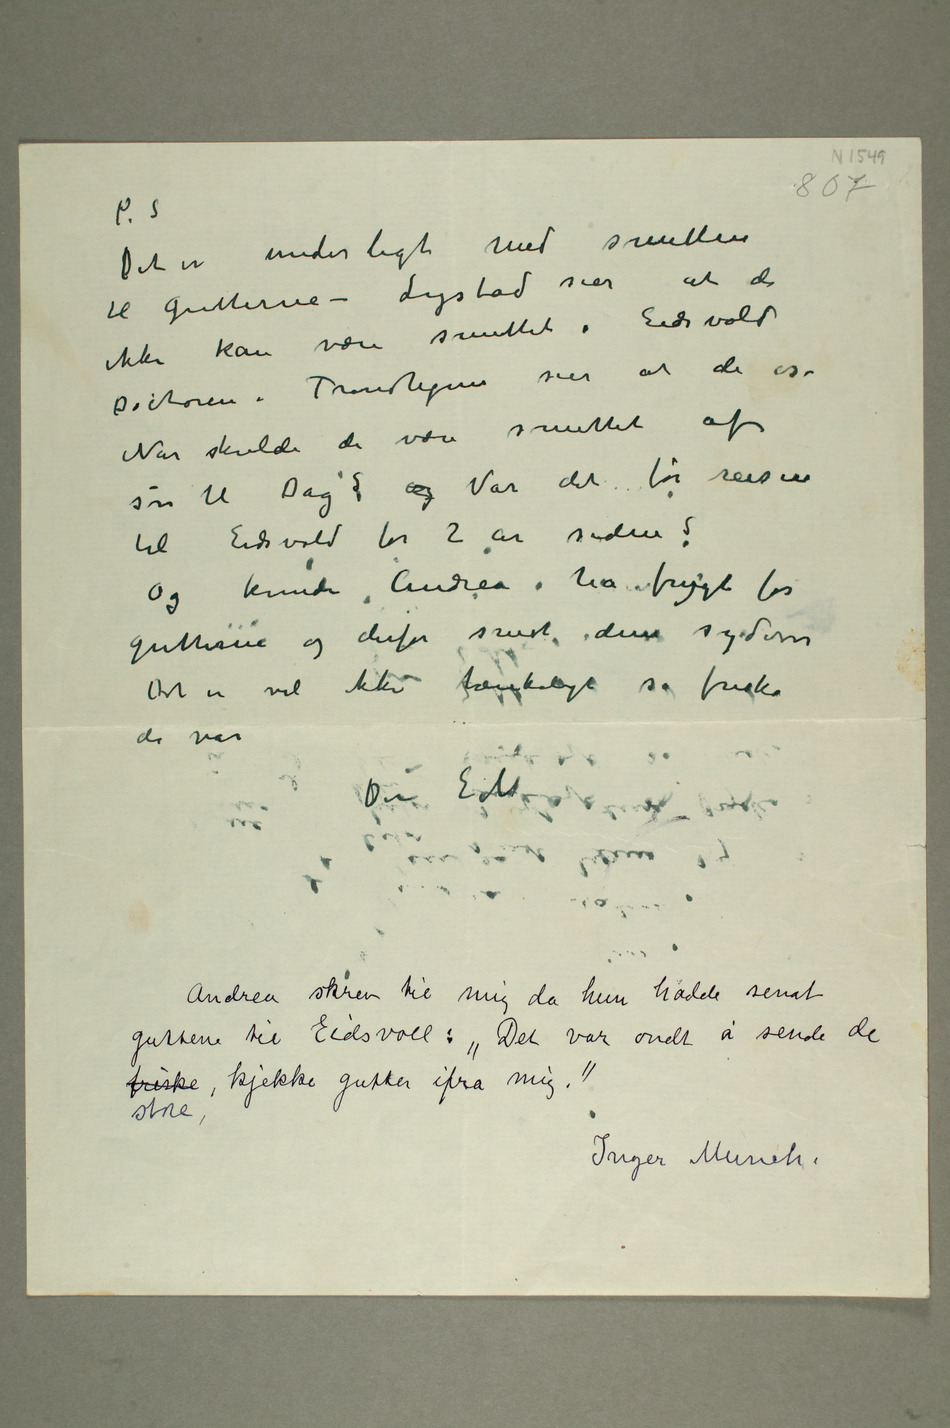 N 1549
807
P. S
Det er underligt med smitten
til gutterne – Lystad sier at de
ikke kan være smittet i Eidsvold
Doctoren i Trondhjem sier at de
Når skulde de være smittet af
til Dag? og Var det før reisen
til Eidsvold for 2 år siden?
Og kunde Andrea ha frygt for
gutterne og derfor sendt dem sydover
Det er vel ikke tænkeligt så friske
de var
Din EM
Andrea skrev til mig da hun hadde sendt
guttene til Eidsvoll: „Det var ondt å sende de
friske, kjekke gutter ifra mig."
store,
Inger Munch.